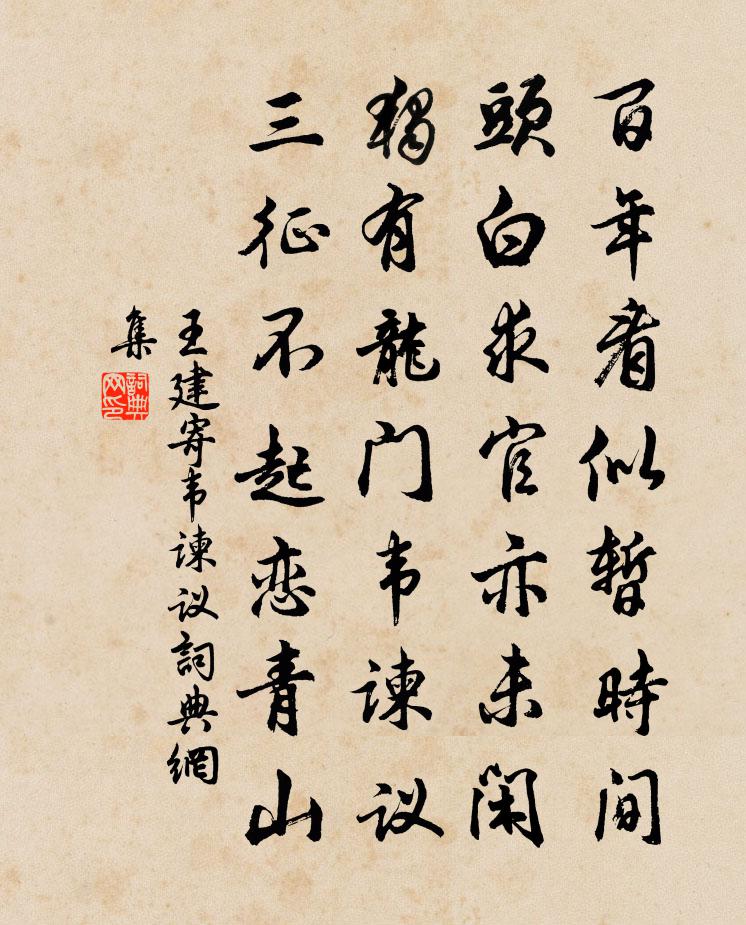 百年看似暫時间
頭白求官亦未闲
獨有龍门韦谏议
三征不起恋青山
王建寄韦谏议詞典網
集
詞典
网印